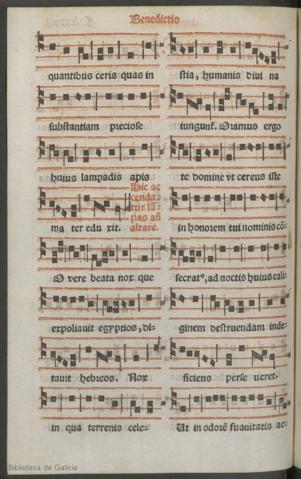 Benedictio
quantibus ceris quas in
substantiam preciose
huius lampadis apis
ma ter edu xit.
Hic ac
cenda
tur lā
pas añ
altare.
O vere beata nox que
expoliauit egyptios, di-
tauit hebreos. Nox
in qua terrenis cele-
stia, humanis diui na
iungunt. Oramus ergo
te domine vt cereus iste
in honorem tui nominis cō-
secratꝰ, ad noctis huius cali-
ginem destruendam inde-
ficiens perse ueret.
Et in odorē suauitatis ac-
Biblioteca de Galicia